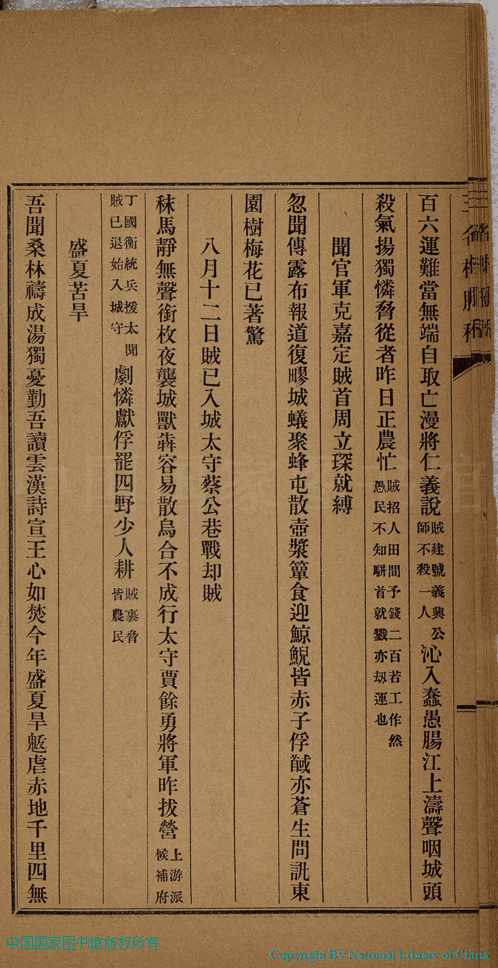 百六運難當無端自取亡漫將仁義說賊建號義興公師不殺一人沁入蠢愚腸江上濤聲咽城頭
殺氣揚獨憐脅從者昨日正農忙賊招人田間予錢二百若工作然愚民不知駢首就戮亦刼運也
聞官軍克嘉定賊首周立琛就縛
忽聞傳露布報道復疁城蟻聚蜂屯散壺漿簞食迎鯨鯢皆赤子俘馘亦蒼生問訊東
園樹梅花已著驚
八月十二日賊已入城太守蔡公巷戰却賊
秣馬靜無聲銜枚夜襲城獸犇容易散烏合不成行太守賈餘勇將軍昨拔營上游派候補府
丁國衡統兵援太聞賊已退始入城守劇憐獻俘罷四野少人耕賊裹脅皆農民
盛夏苦旱
吾聞桑林禱成湯獨憂勤吾讀雲漢詩宣王心如焚今年盛夏旱魃虐赤地千里四無
中国国家图书馆版权所有
Copyright By National Library of China